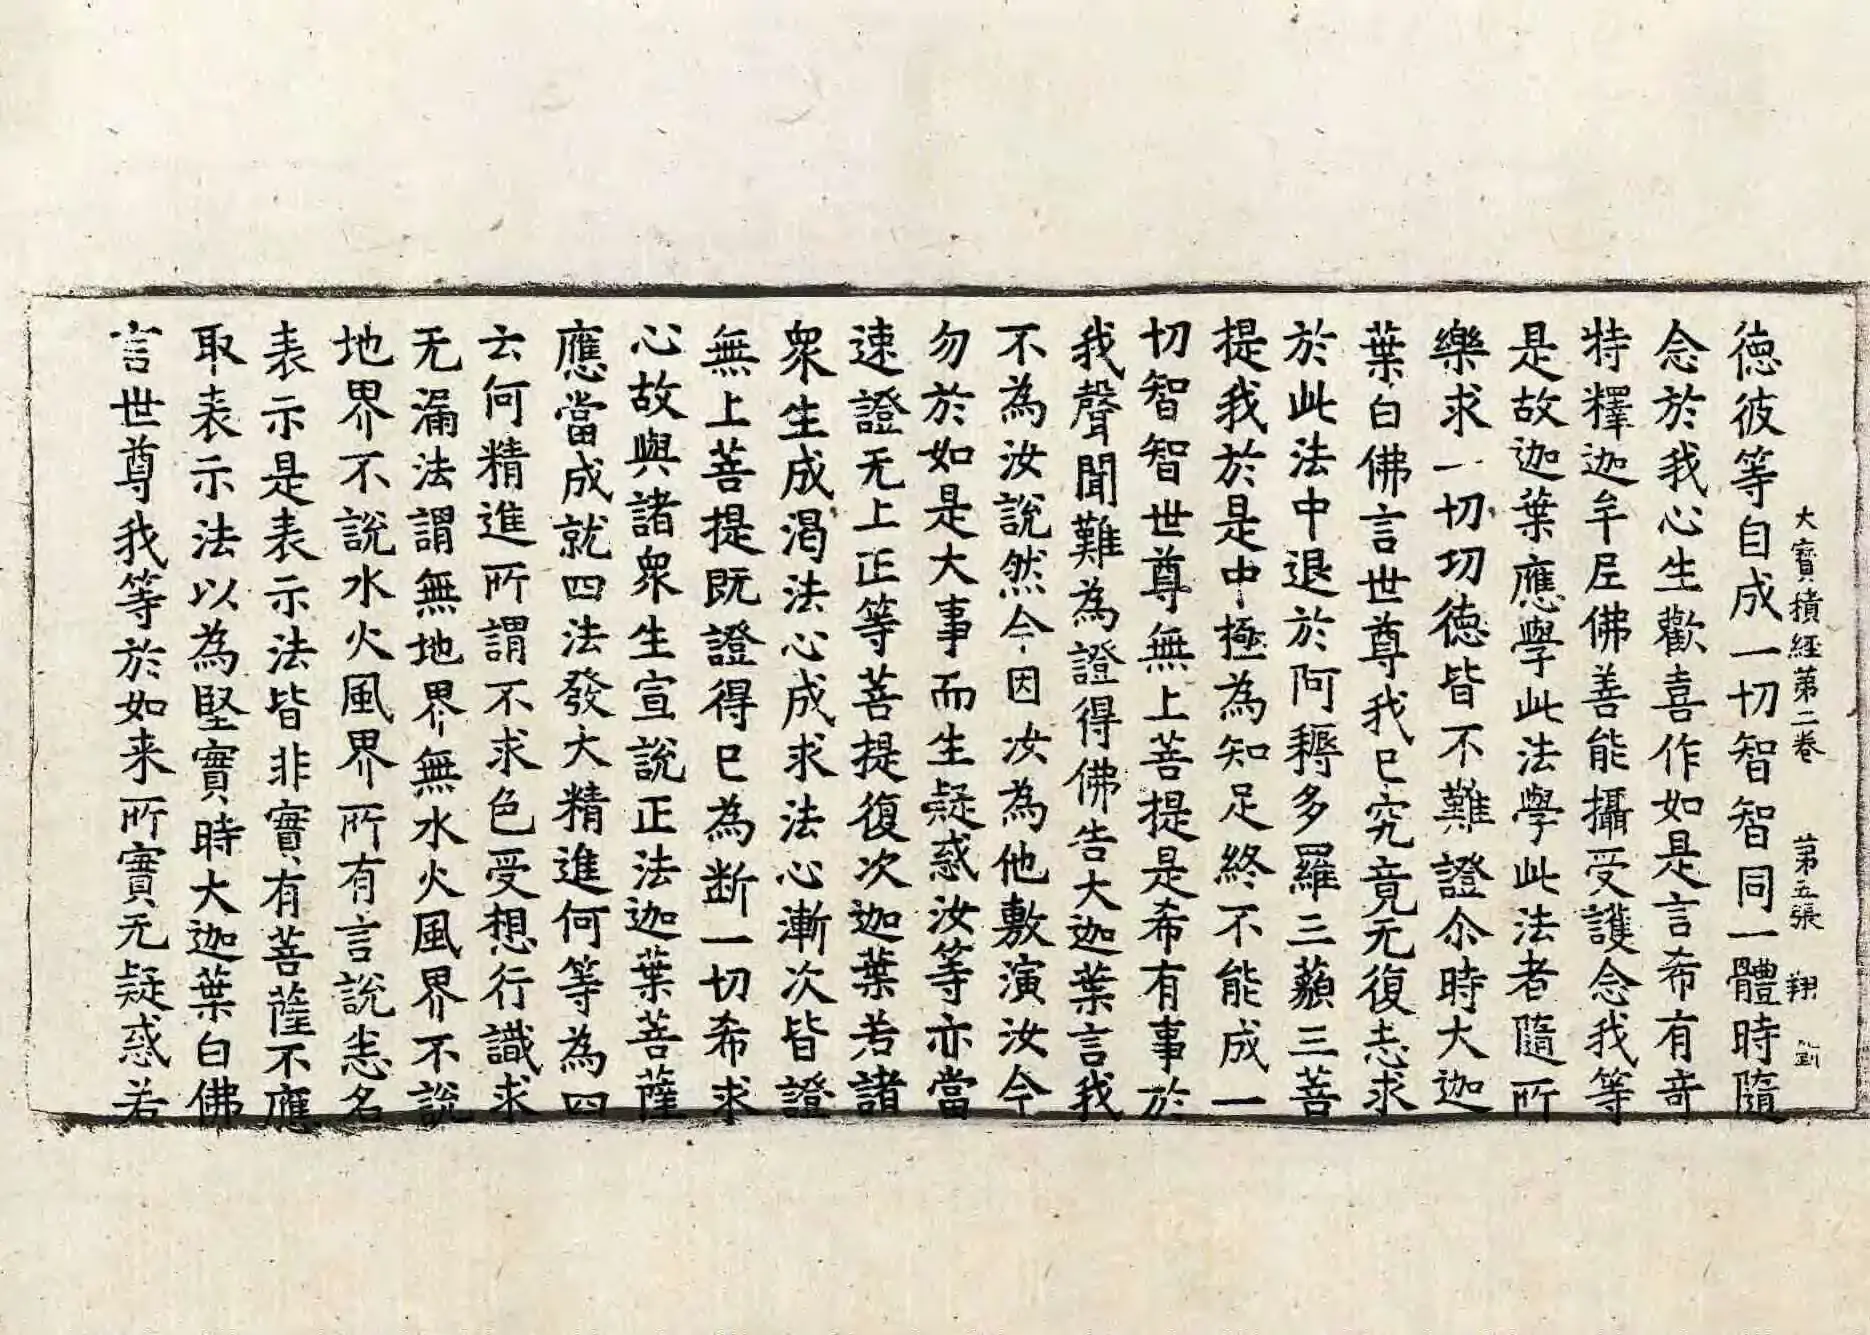 大寳積經第二卷　第五張　翔
德彼等自成一切智智同一體時隨
念於我心生歡喜作如是言希有竒
特釋迦牟尼佛善能攝受護念我等
是故迦葉應學此法學此法者隨所
樂求一切功德皆不難證尒時大迦
葉白佛言世尊我已究竟无復志求
於此法中退於阿耨多羅三藐三菩
提我於是中極為知足終不能成一
切智智世尊無上菩提是希有事於
我聲聞難為證得佛告大迦葉言我
不為汝說然今因汝為他敷演汝今
勿於如是大事而生疑惑汝等亦當
速證无上正等菩提復次迦葉若諸
眾生成渴法心成求法心漸次皆證
無上菩提既證得已為斷一切希求
心故與諸眾生宣說正法迦葉菩薩
應當成就四法發大精進何等為四
云何精進所謂不求色受想行識求
无漏法謂無地界無水火風界不說
地界不說水火風界所有言說恙名
表示是表示法皆非實有菩薩不應
取表示法以為堅實時大迦葉白佛
言世尊我等於如来所實无疑惑若